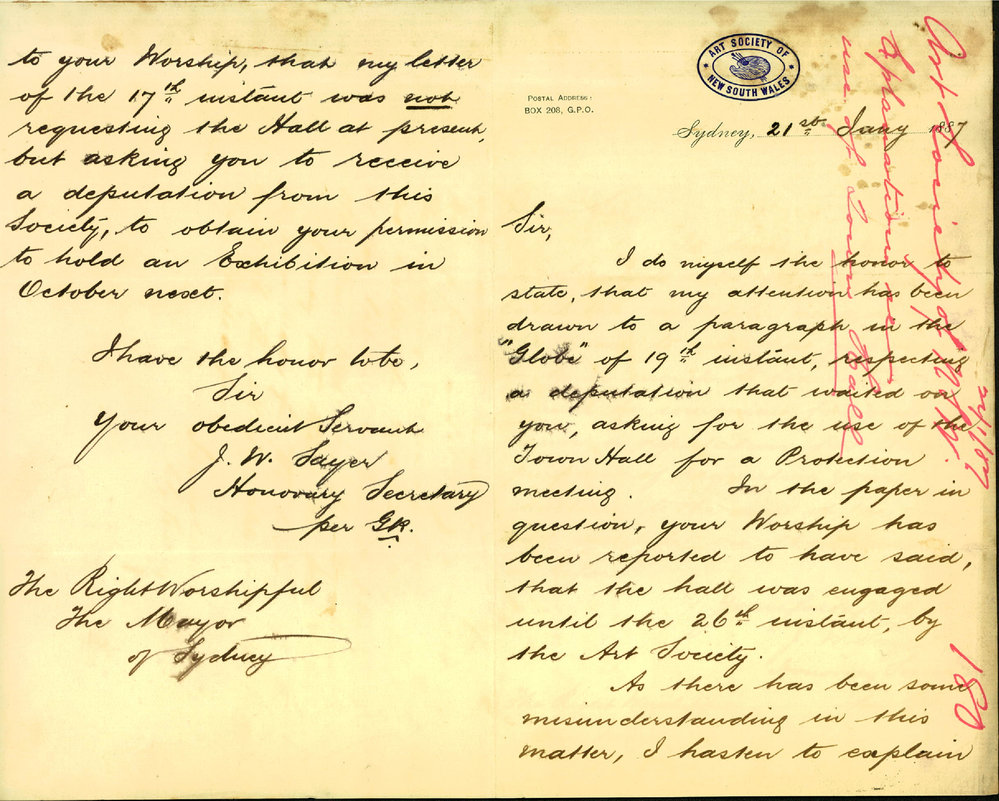 ART SOCIETY OF
NEW SOUTH WALES
POSTAL ADDRESS:
BOX 208, G.P.O.
Sydney, 21st Jany 1887
Sir,
I do myself the honor to
state, that my attention has been
drawn to a paragraph in the
"Globe" of 19th instant, respecting
a deputation that waited on
you, asking for the use of the
Town Hall for a Protection
meeting. In the paper in
question, your Worship has
been reported to have said,
that the hall was engaged
until the 26th instant, by
the Art Society.
As there has been some
misunderstanding in this
matter, I hasten to explain
to your Worship, that my letter
of the 17th instant was not
requesting the Hall at present,
but asking you to receive
a deputation from this
Society, to obtain your permission
to hold an Exhibition in
October next.
I have the honor to be,
Sir
Your obedient Servant
J. W. Sayer
Honorary Secretary
per GK.
The Right Worshipful
The Mayor
of Sydney
Art Society of N.S.W.
Explanation re
use of Town Hall
24/1/87
180